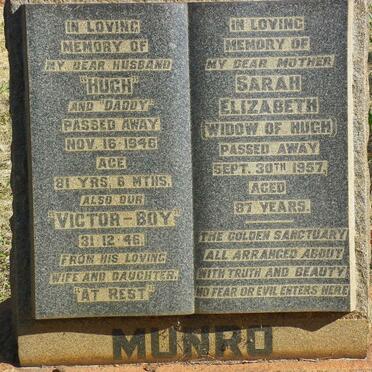 IN LOVING
MEMORY OF
MY DEAR HUSBAND
"HUGH"
AND "DADDY"
PASSED AWAY
NOV. 16-1946
AGE
81 YRS. 6 MTHS.
ALSO OUR
"VICTOR-BOY"
31.12.46.
FROM HIS LOVING
WIFE AND DAUGHTER.
"AT REST"
IN LOVING
MEMORY OF
MY DEAR MOTHER
SARAH
ELIZABETH
(WIDOW OF HUGH)
PASSED AWAY
SEPT. 30TH 1957,
AGED
87 YEARS.
THE GOLDEN SANCTUARY
ALL ARRANGED ABOUT
WITH TRUTH AND BEAUTY
NO FEAR OR EVIL ENTERS HERE
MUNRO